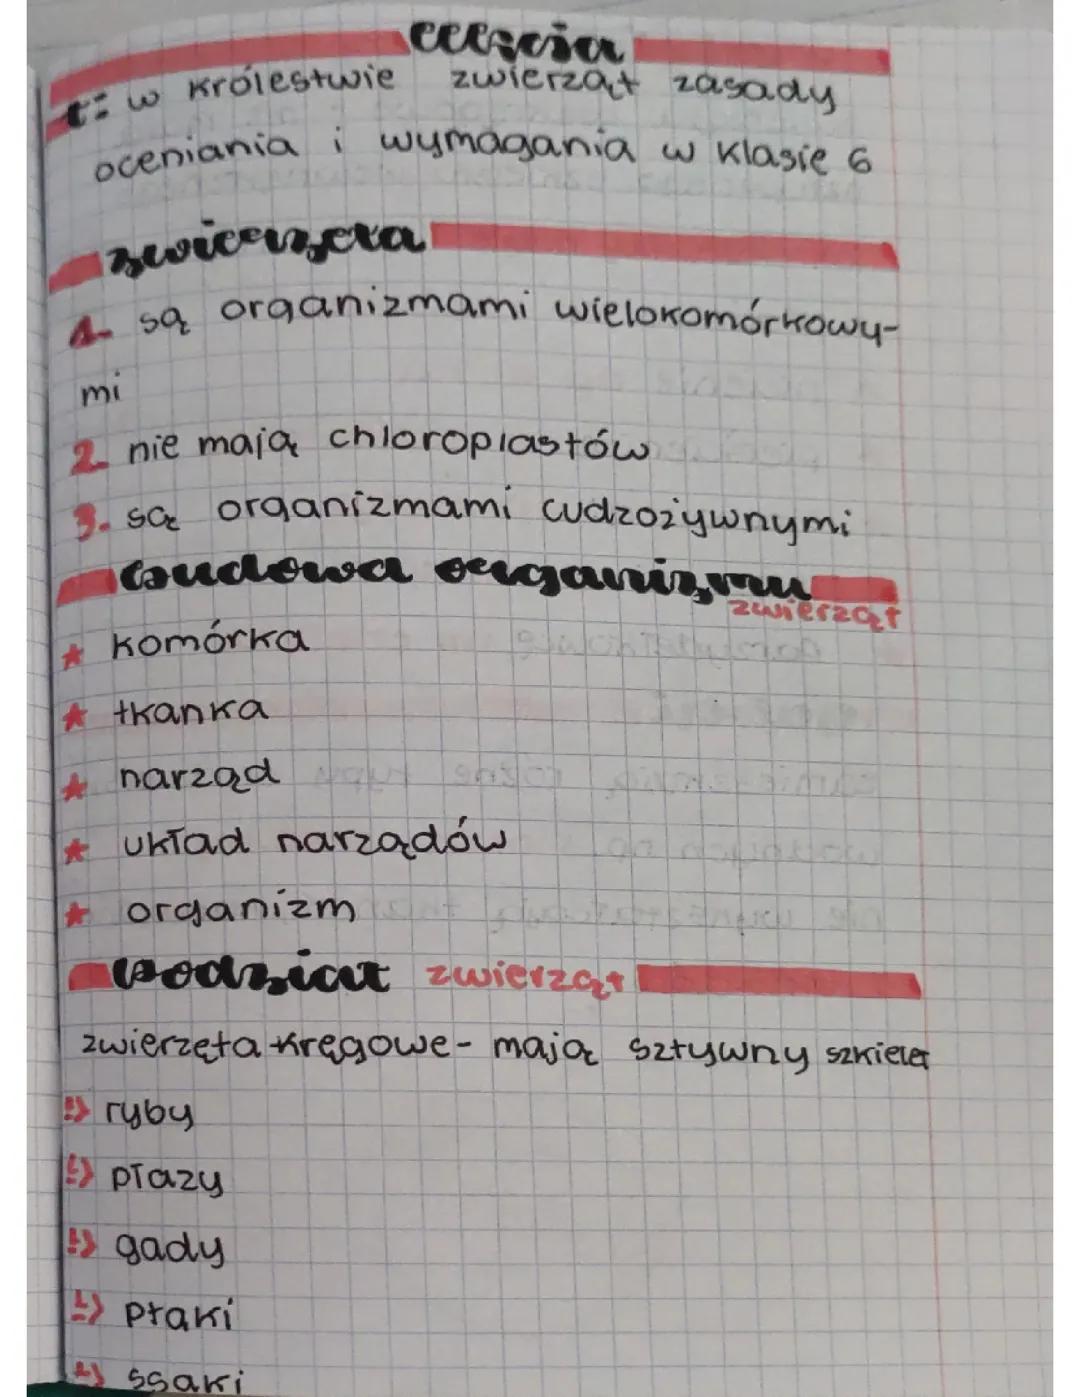 lekcja
t: w królestwie zwierząt zasady
oceniania i wymagania w klasie 6
zwierzęta
1. są organizmami wielokomórkowy-
mi
2. nie mają chloroplastów
3. są organizmami cudzożywnymi
budowa organizmu
zwierząt
komórka
tkanka
narząd
układ narządów
organizm
podział zwierząt
zwierzęta kręgowe - mają sztywny szkielet
ryby
płazy
gady
ptaki
ssaki